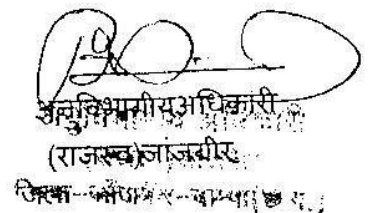 अनुविभागीय अधिकारी
(राजस्व)जांजगीर
जिला-जांजगीर-चाम्पा(छ.ग.)